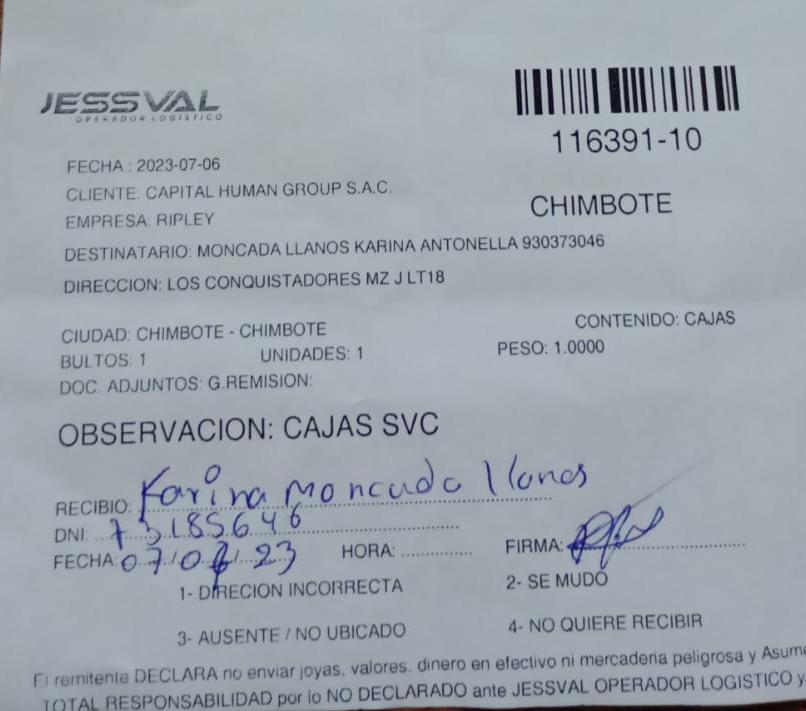 JESSVAL
OPERADOR LOGISTICO
116391-10
FECHA : 2023-07-06
CLIENTE: CAPITAL HUMAN GROUP S.A.C.
EMPRESA: RIPLEY
CHIMBOTE
DESTINATARIO: MONCADA LLANOS KARINA ANTONELLA 930373046
DIRECCION: LOS CONQUISTADORES MZ J LT18
CIUDAD: CHIMBOTE - CHIMBOTE
CONTENIDO: CAJAS
BULTOS: 1 UNIDADES: 1 PESO: 1.0000
DOC. ADJUNTOS: G.REMISION:
OBSERVACION: CAJAS SVC
RECIBIO: Karina Moncada Llanos
DNI: 73185646
FECHA: 07/07/23 HORA: FIRMA:
1- DIRECION INCORRECTA 2- SE MUDO
3- AUSENTE / NO UBICADO 4- NO QUIERE RECIBIR
El remitente DECLARA no enviar joyas, valores, dinero en efectivo ni mercaderia peligrosa y Asume
TOTAL RESPONSABILIDAD por lo NO DECLARADO ante JESSVAL OPERADOR LOGISTICO y